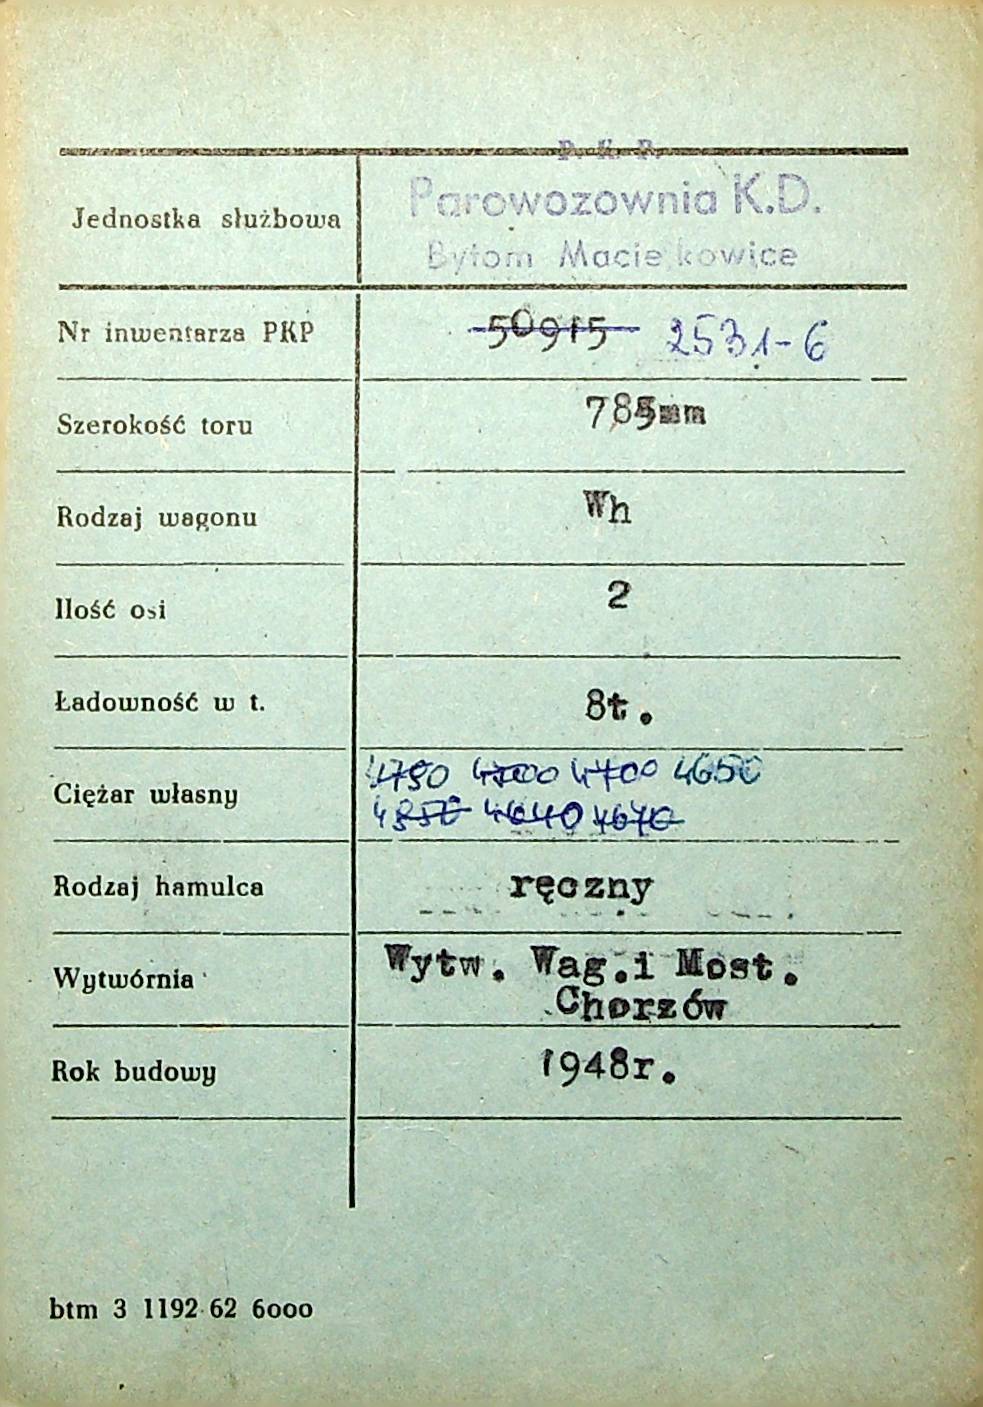 P. K. P.
Parowozownia K.D.
Jednostka służbowa
Bytom Maciejkowice
Nr inwentarza PKP 50915 2531-6
Szerokość toru 785mm
Rodzaj wagonu Wh
Ilość osi 2
Ładowność w t. 8t.
4750 4700 4650
Ciężar własny
4640 4670
Rodzaj hamulca ręczny
Wytwórnia Wytw. Wag.i Most.
Chorzów
Rok budowy 1948r.
btm 3 1192 62 6000